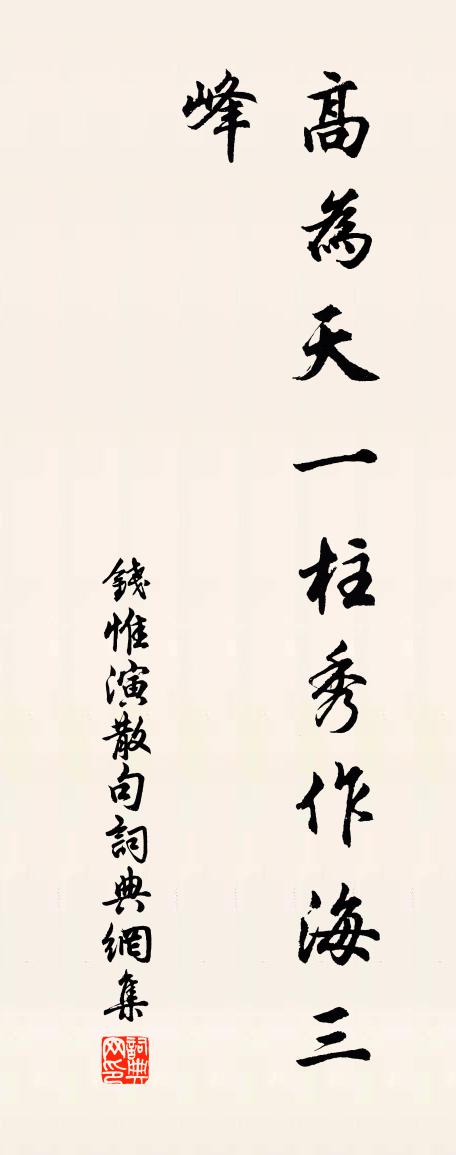 高為天一柱秀作海三
峰
錢惟演散句詞典網集
詞典网印